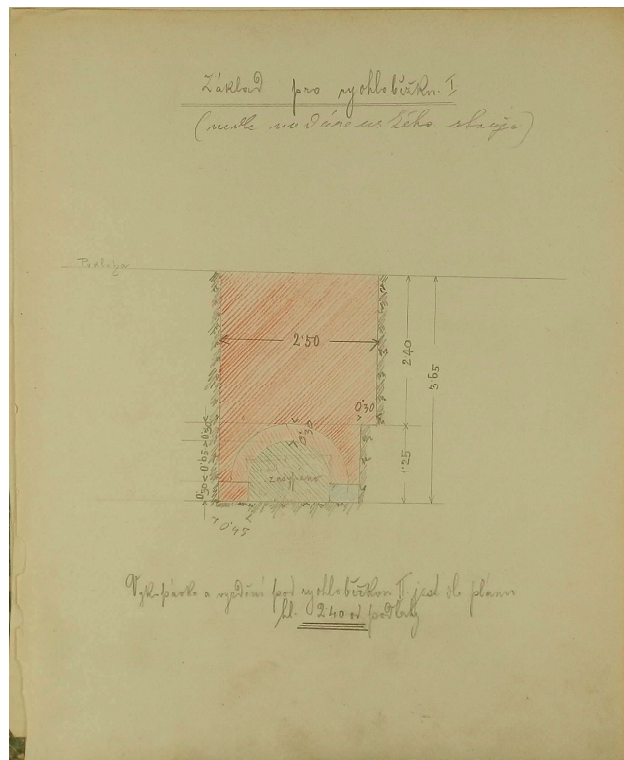 Základ pro rychloběžku. I
(vedle
Podlaha
2·50
2·40
3·65
0·30
0·30
1·25
0·30 0·65 0·30
zasypáno
0·45
Výkopávka a vyzdění pod rychloběžkou II. jest dle plánu
hl. 2·40 od podlahy